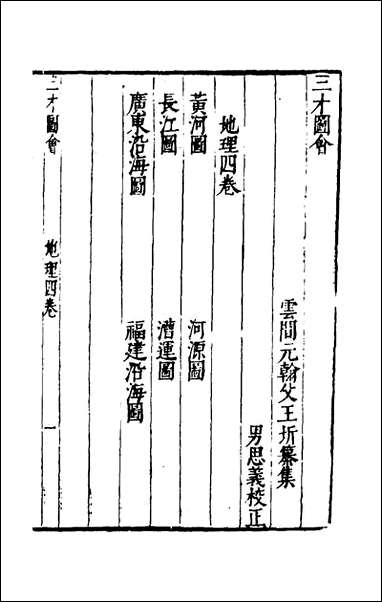 三才圖會
雲間元翰父王圻纂集
男思義校正
地理四卷
黃河圖 河源圖
長江圖 漕運圖
廣東沿海圖 福建沿海圖
三才圖會 地理四卷 一